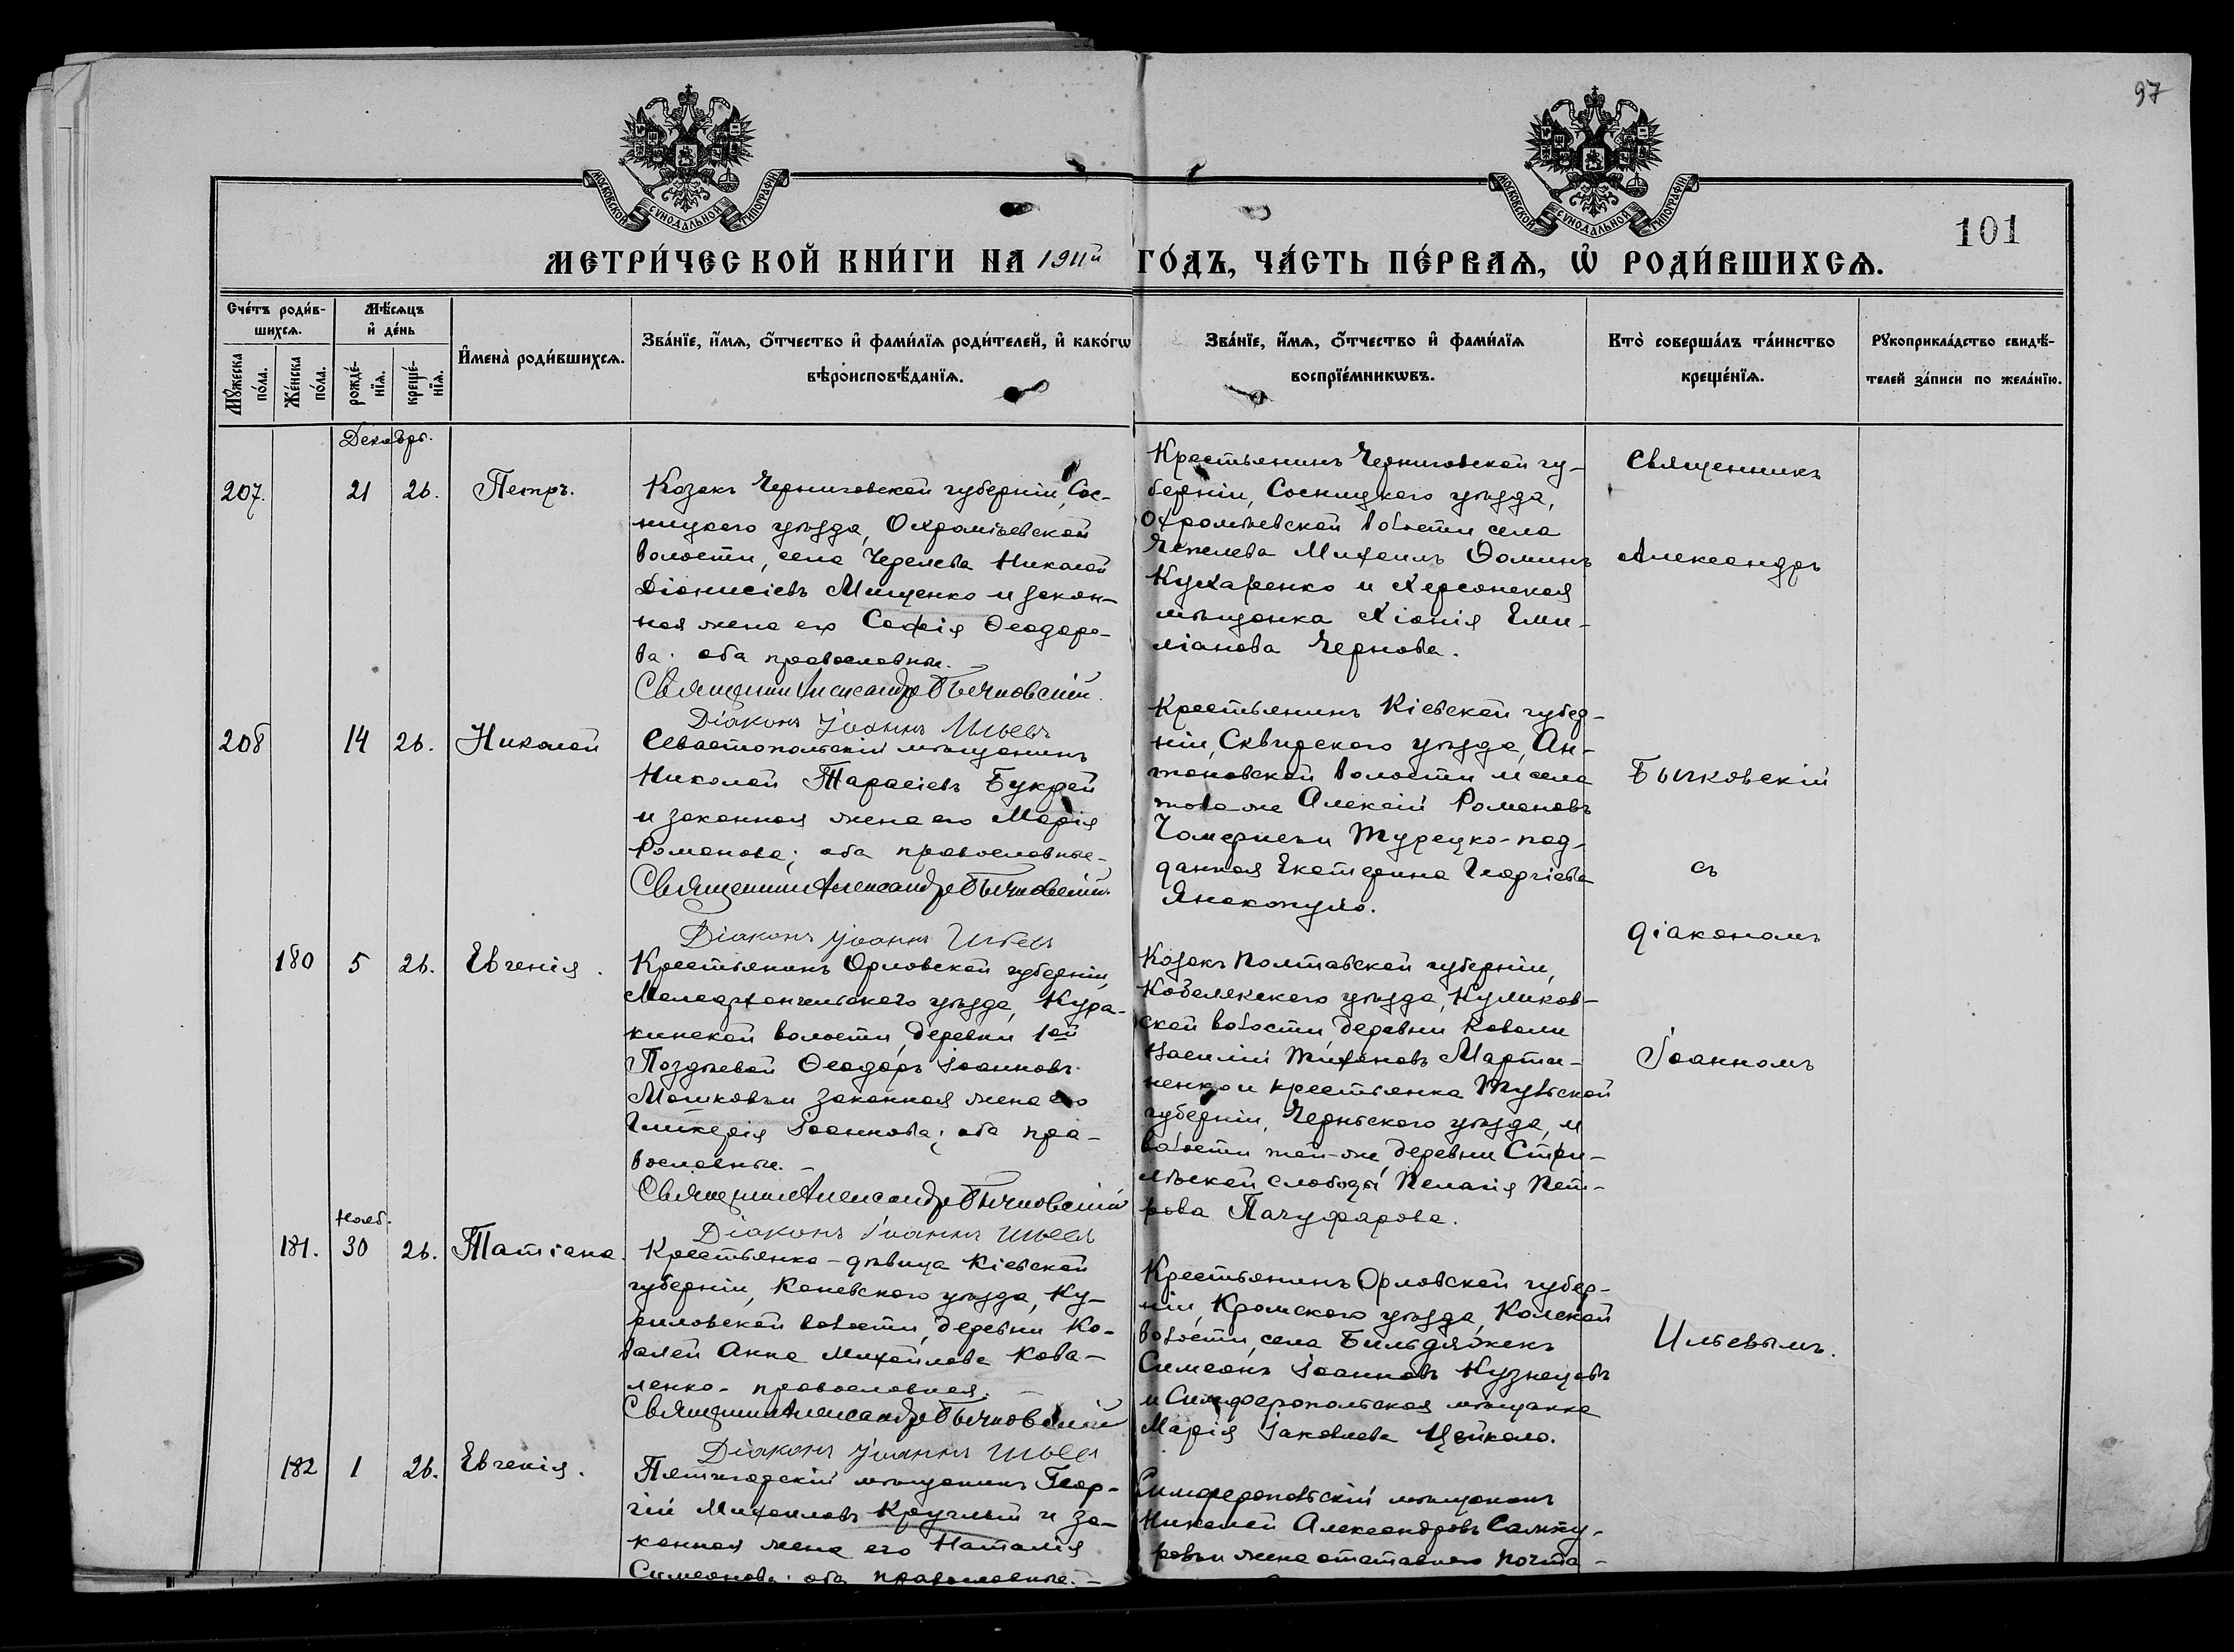 97
МОСКОВСКОЙ СУНОДАЛЬНОЙ ТИПОГРАФІИ
МОСКОВСКОЙ СУНОДАЛЬНОЙ ТИПОГРАФІИ
101
МЕТРИ́ЧЕСКОЙ КНИ́ГИ НА 1911й ГО́ДЪ, ЧА́СТЬ ПЕ́РВАѦ, Ѡ҆ РОДИ́ВШИХСѦ.
Сче́тъ роди́в-
шихсѧ.
Мѣ́сѧцъ
и҆ де́нь
Мꙋ́жеска
по́ла.
Же́нска
по́ла.
рожде́-
нїѧ.
креще́-
нїѧ.
И҆мена̀ роди́вшихсѧ.
Зва́нїе, и҆́мѧ, ѻ҆́тчество и҆ фами́лїѧ роди́телей, и҆ како́гѡ
вѣроисповѣ́данїѧ.
Зва́нїе, и҆́мѧ, ѻ҆́тчество и҆ фами́лїѧ
воспрїе́мникѡвъ.
Кто̀ соверша́лъ та́инство
креще́нїѧ.
Рꙋкоприкла́дство свидѣ́-
телей за́писи по жела́нїю.
Декабрь.
207.
21 26.
Петръ.
Козакъ Черниговской губерніи, Сос-
ницкаго уѣзда, Охраміевской
волости, села Черелева Николай
Діонисіевъ Мищенко и закон-
ная жена его Софія Ѳеодоро-
ва; оба православные.
Священникъ Александръ Бычковскій.
Діаконъ Іоаннъ Ильевъ
Крестьянинъ Черниговской гу-
берніи, Сосницкаго уѣзда,
Охроміевской волости села
Чепелева Михаилъ Ѳоминъ
Кухаренко и Херсонская
мѣщанка Хіонія Еми-
ліанова Чернова.
Священникъ
Александръ
Бычковскій
съ
діакономъ
Іоанномъ
Ильевымъ.
208
14 26.
Николай
Севастопольскій мѣщанинъ
Николай Тарасіевъ Букрей
и законная жена его Марія
Романова; оба православные-
Священникъ Александръ Бычковскій.
Діаконъ Іоаннъ Ильевъ
Крестьянинъ Кіевской губер-
ніи, Сквирскаго уѣзда, Ан-
тоновской волости и села
того-же Алексій Романовъ
и Турецко-под-
данная Екатерина Георгіева
Янакопуло.
180
5 26.
Евгенія.
Крестьянинъ Орловской губерніи,
Малоархангельскаго уѣзда, Кура-
кинской волости, деревни 1ой
Поздѣевой Ѳеодоръ Іоанновъ
Машковъ и законная жена его
Гликерія Іоаннова; оба пра-
вославные. -
Священникъ Александръ Бычковскій
Діаконъ Іоаннъ Ильевъ
Козакъ Полтавской губерніи,
Кобелякскаго уѣзда, Куликов-
ской волости, деревни Ковали
Василій Тихоновъ Марти-
ненко и крестьянка Тульской
губерніи, Чернскаго уѣзда, и
волости той-же, деревни Стрѣ-
лѣцкой слободы Пелагія Пет-
рова
181.
Нояб.
30 26.
Татіана.
Крестьянка-дѣвица Кіевской
губерніи, Каневскаго уѣзда, Ку-
риловской волости, деревни Ко-
валей Анна Михайлова Кова-
ленко- православная. -
Священникъ Александръ Бычковскій
Діаконъ Іоаннъ Ильевъ
Крестьянинъ Орловской губер-
ніи, Кромскаго уѣзда,
волости, села
Симеонъ Іоанновъ Кузнецовъ
и Симферопольская мѣщанка
Марія Іаковлева
182
1 26.
Евгенія.
Пятигорскій мѣщанинъ Геор-
гій Михаиловъ Круглый и за-
конная жена его Наталія
Симеонова; оба православные. -
Симферопольскій мѣщанинъ
Николай Александровъ
жена отставнаго почта-